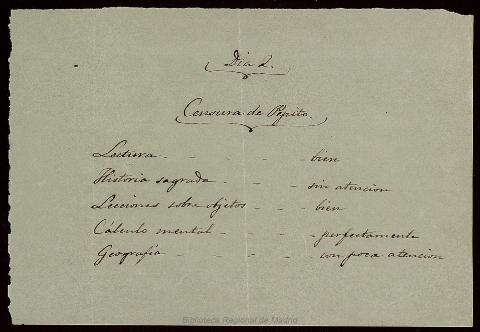 Dia 2.
Censura de Pepito.
Lectura - - - - - bien
Historia sagrada - - - sin atencion
Lecciones sobre objetos - - - bien
Cálculo mental - - - - perfectamente
Geografía - - - - - con poca atencion
Biblioteca Regional de Madrid